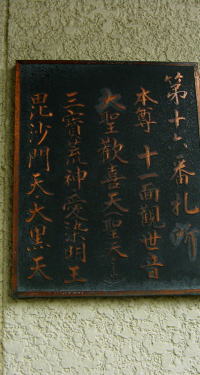 第十六番札所
本尊 十一面観世音
大聖歓喜天(聖天)
三寳荒神愛染明王
毘沙門天大黒天